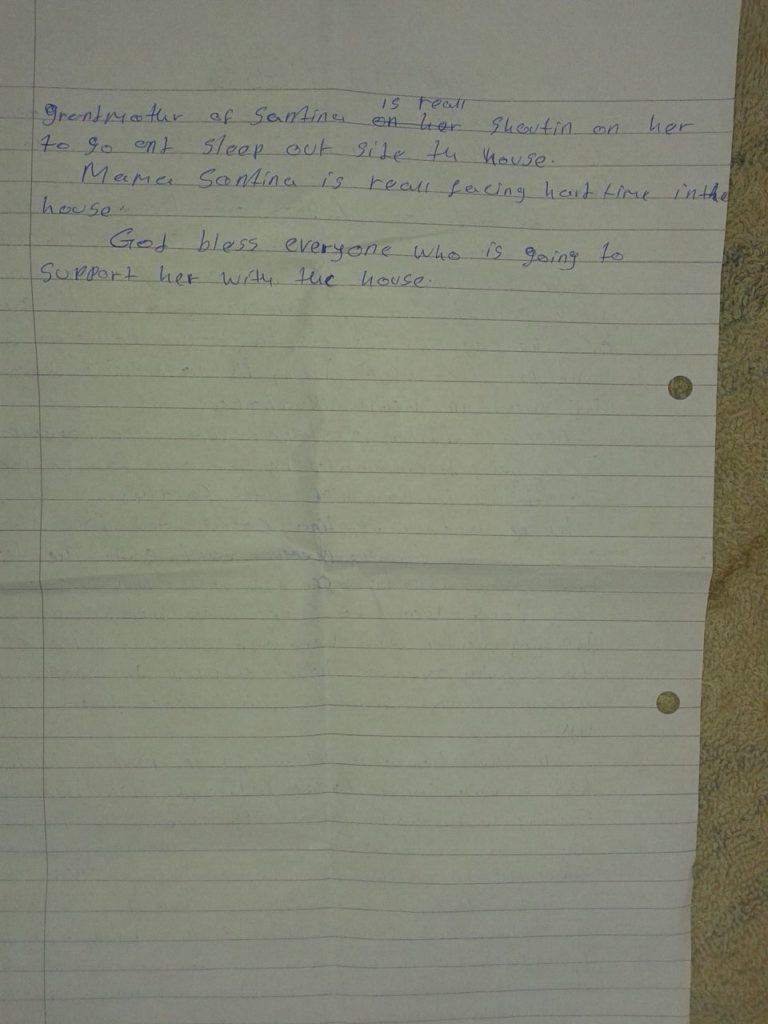 is reall
grandmother of Santina on her shoutin on her
to go ant sleep out side the house.
Mama Santina is reall facing hard time in the
house.
God bless everyone who is going to
support her with the house.